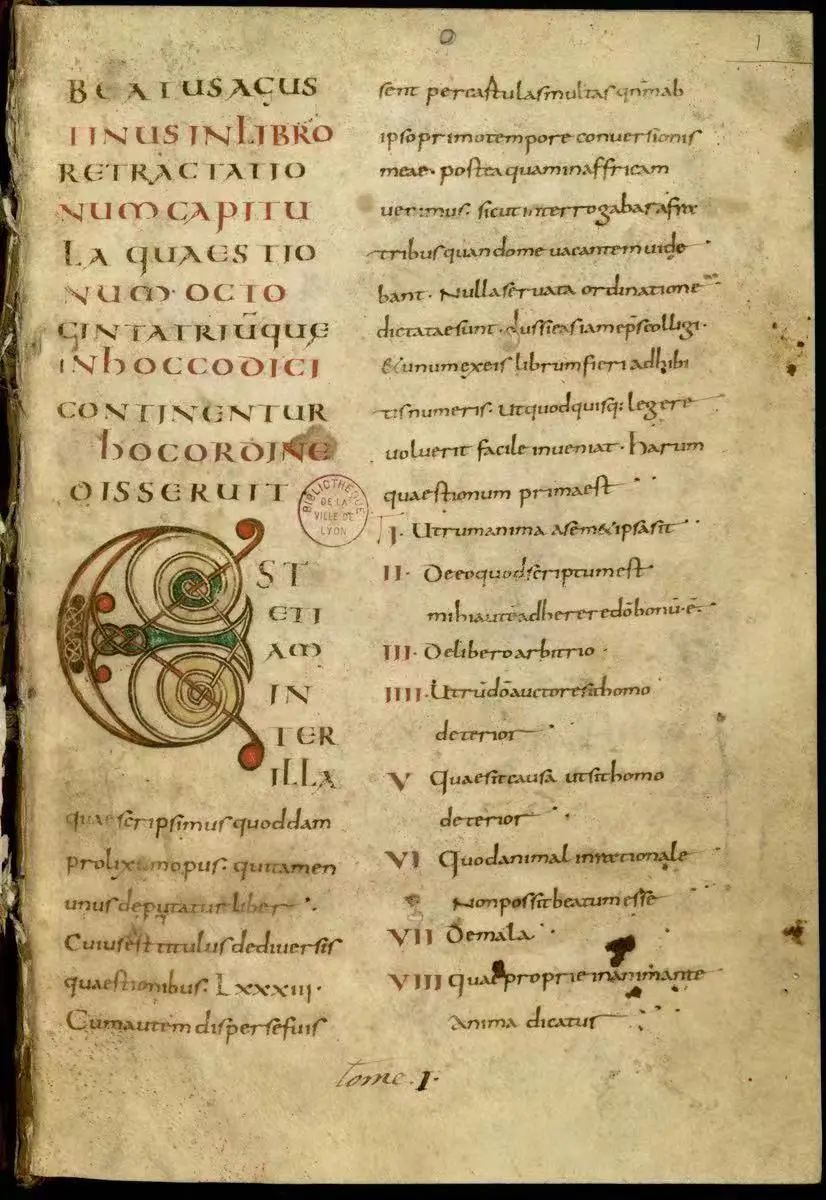 0
1
BEATUS AGUS
TINUS IN LIBRO
RETRACTATIO
NUM CAPITU
LA QUAESTIO
NUM · OCTO
GINTA TRIŪ QUE
IN hOC CODICI
CONTINENTUR
hOC ORDINE
DISSERUIT
EST
ETI
AM
IN
TER
ILLA
quae scripsimus quoddam
prolixum opus. qui tamen
unus deputatur liber
Cuius est titulus de diversis
quaestionibus. LXXXIII.
Cum autem dispersę fuis
sent per cartulas multas qm̄ ab
ipso primo tempore conversionis
meae. postea quam in affricam
venimus. sicut interrogabar a fra
tribus quando me vacantem vide
bant. Nulla servata ordinatione
dictatae sunt. Iussi eas iam ep̄s colligi.
& unum ex eis librum fieri adhibi
tis numeris. Ut quod quisq; legere
voluerit facile inveniat. harum
quaestionum prima est
I. Utrum anima a sem& ipsa sit
II. De eo quod scriptum est
mihi autē adherere dō bonū. ē.
III. De libero arbitrio
IIII. Utrū dō auctore sit homo
deterior
V Quae sit causa ut sit homo
deterior
VI Quod animal inrationale
Non possit beatum esse
VII De mala
VIII Quae proprie in animante
Anima dicatur
BIBLIOTHEQUE
DE LA
VILLE DE
LYON
tome. 1.